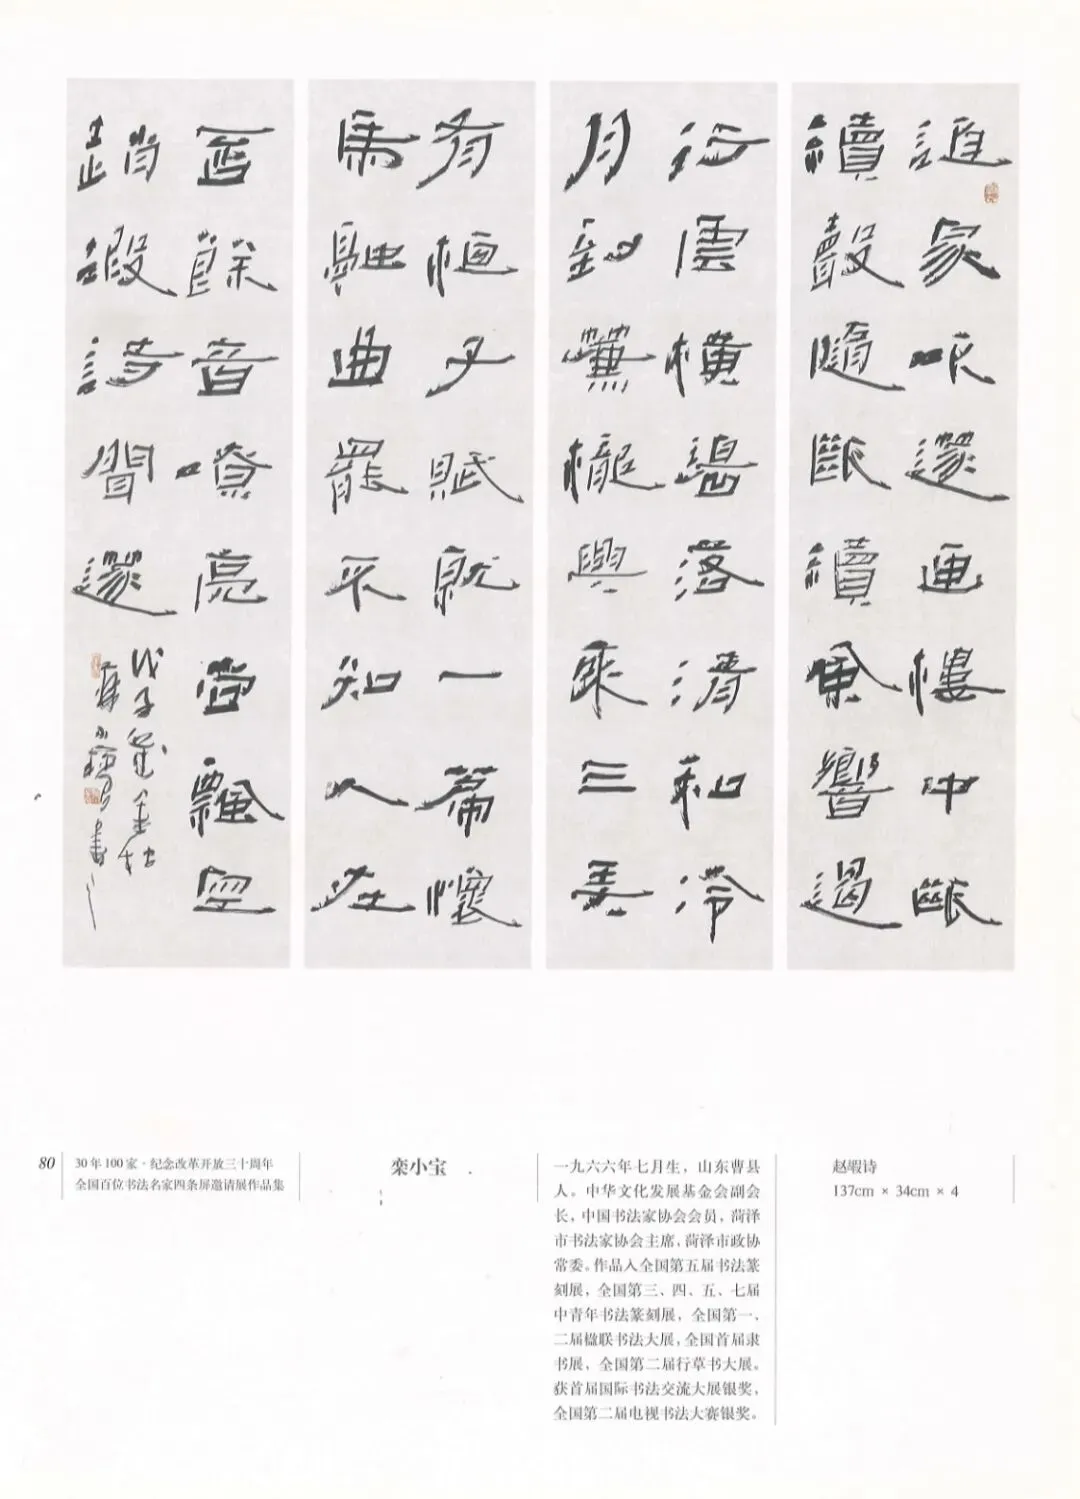 誰家吹篴畫樓中斷
續聲隨斷續風響遏
行雲橫碧落清和冷
月到簾櫳興來三弄
有桓子賦就一篇懷
馬融曲罷不知人在
否餘音嘹亮尚飄空
趙嘏詩聞篴
戊子歲金秋
欒小寶書
80
30年100家·纪念改革开放三十周年
全国百位书法名家四条屏邀请展作品集
栾小宝
一九六六年七月生，山东曹县
人。中华文化发展基金会副会
长，中国书法家协会会员，菏泽
市书法家协会主席，菏泽市政协
常委。作品入全国第五届书法篆
刻展，全国第三、四、五、七届
中青年书法篆刻展，全国第一、
二届楹联书法大展，全国首届隶
书展，全国第二届行草书大展。
获首届国际书法交流大展银奖，
全国第二届电视书法大赛银奖。
赵嘏诗
137cm × 34cm × 4